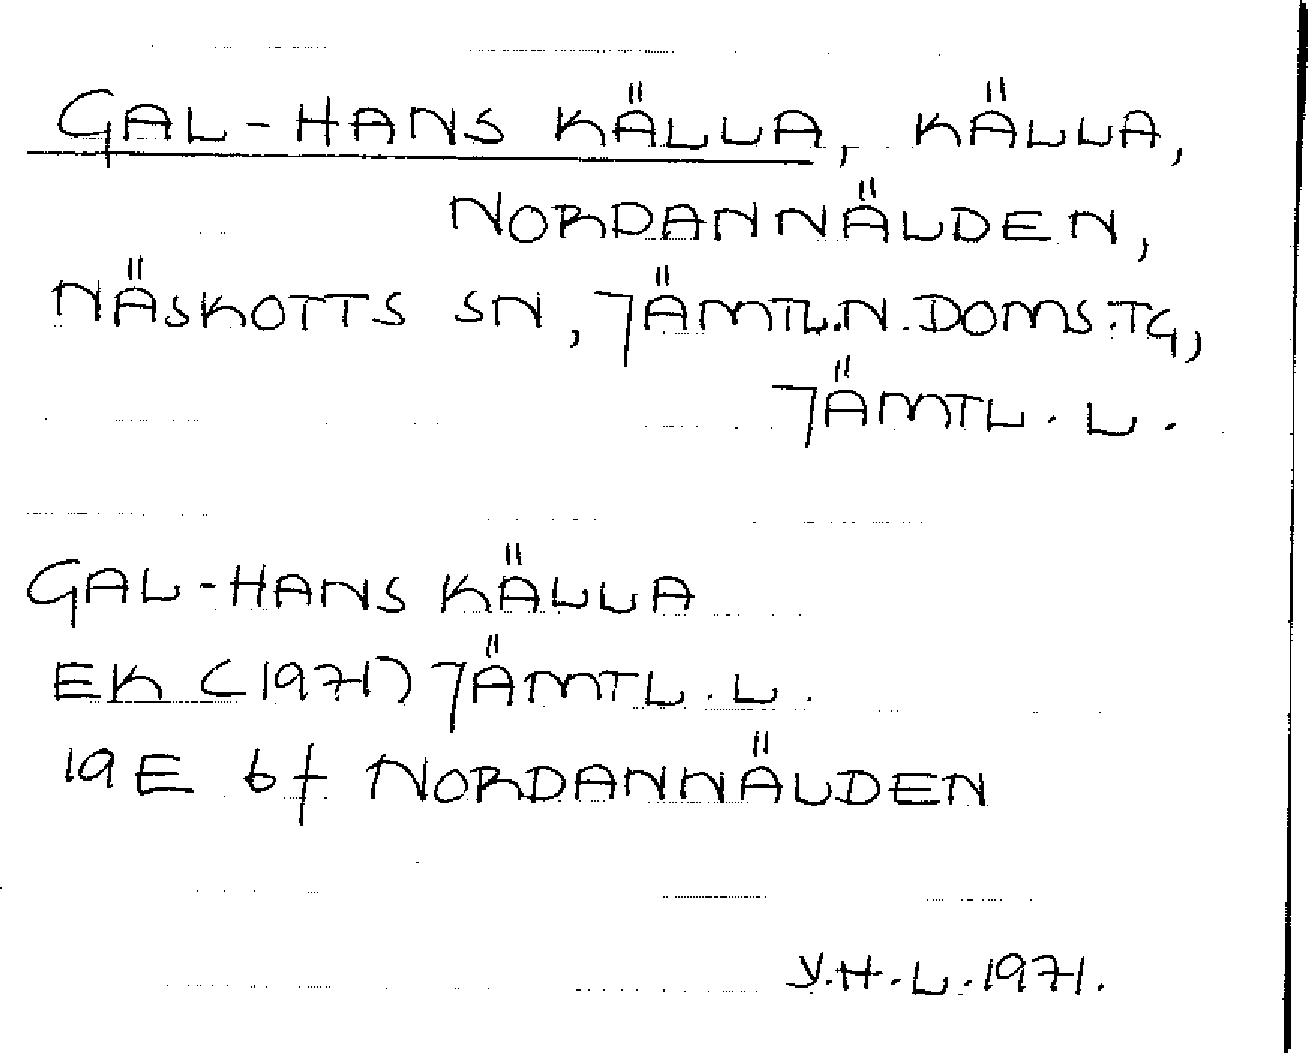 GAL-HANS KÄLLA, KÄLLA,
NORDANNÄLDEN,
NÄSKOTTS SN, JÄMTL.N.DOMS.TG,
JÄMTL. L.
GAL-HANS KÄLLA
EK (1971) JÄMTL. L.
19E 6f NORDANNÄLDEN
Y.H.L. 1971.